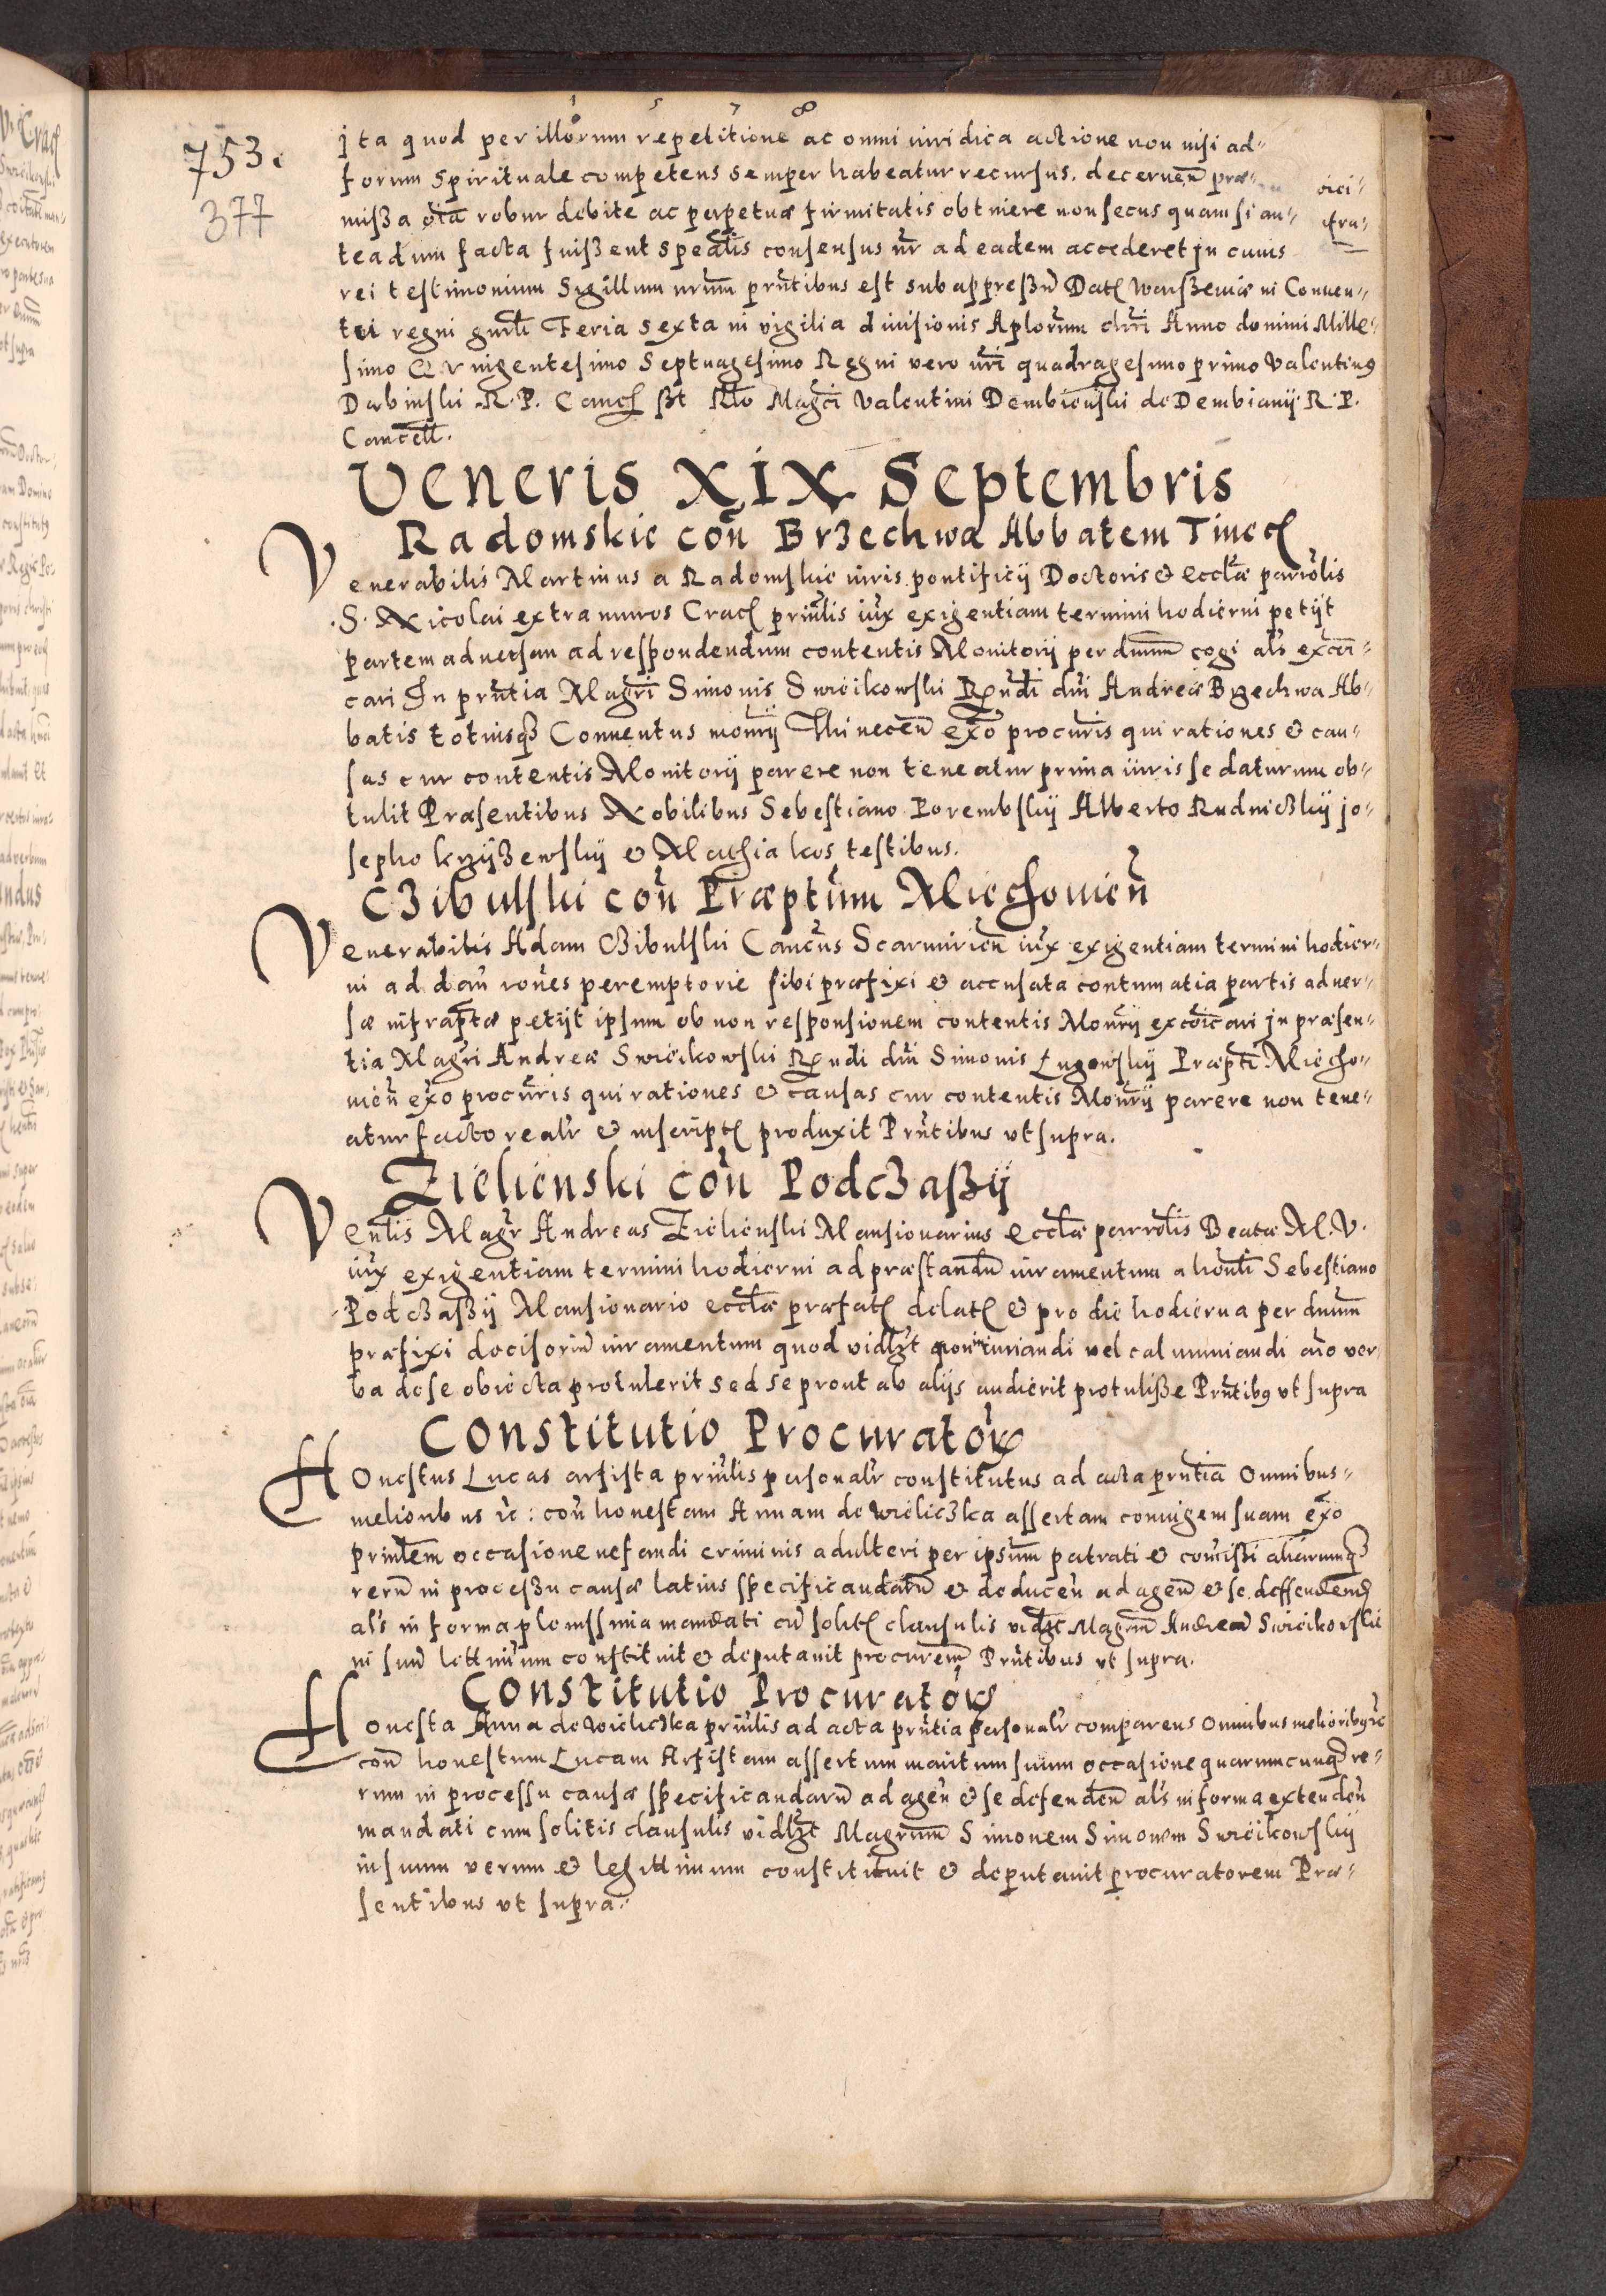 1 5 7 8
753.
377
jta quod per illorum repetitione ac omni iuridica actione non nisi ad„
forum spirituale competens semper habeatur recursus. decernen̄ præ„
mißa oīa robur debite ac perpetuæ firmitatis obtinere non secus quam si an„
teadum facta fuißent spealīs consensus nr̄ ad eadem accederet jn cuius
rei testimonium Sigillum nrūm prn̄tibus est subappreßū Dat Warßeviæ in Conuen„
tui regni gnrlī Feria sexta in vigilia diuisionis Aplorūm Anno domini Mille„
simo Quingentesimo Septuagesimo Regni vero nrī quadragesimo primo Valentinus
Dabinski R. P. Canc ßt Rlō Magcī Valentini Dembienski de Dembianij R. P.
Cancell̄.
Veneris XIX Septembris
Radomskie con̄ Brzechwa Abbatem Tinec
Venerabilis Martinus a Radomskie iuris pontificij Doctoris & ecclǣ parrōlis
S. Nicolai extra muros Crac prinlīs iux̄ exigentiam termini hodierni petijt
partem aduersam ad respondendum contentis Monitorij per dnum̄ cogi als̄ excoī„
cari In prn̄tia Magrī Simonis Swieikowski Rn̄di dnī Andreæ Brzechwa Ab„
batis totiusq3 Conuentus monrīj Thinecen̄ exō procurīs qui rationes & cau„
sas cur contentis Monitorij parere non teneatur prima iuris se daturum ob„
tulit Præsentibus Nobilibus Sebestiano Porembskij Alberto Rudniczkij jo„
sepho krzyżewskij & Mathia kos testibus.
Czibulski con̄ Præptūm Miechouien̄
Venerabilis Adam Czibulski Cancūs Scarmirien̄ iux̄ exigentiam termini hodier„
ni ad dan̄ ronēs peremptorie sibi præfixi & accusata contumatia partis aduer„
sæ infraptǣ petijt ipsum ob non responsionem contentis Monrīj excoīcari jn præsen„
tia Magrī Andreæ Swieikowski Rn̄di dnī Simonis Lugowskij Præptī Miecho„
uien̄ exō procurīs qui rationes & causas cur contentis Monrīj parere non tene„
atur facto realr̄ & inscript produxit Prn̄tibus vt supra.
Zielienski con̄ Podczaßij
Venlīs Magr̄ Andreas Zielienski Mansionarius ecclǣ parrolīs Beatæ M. V.
iux̄ exigentiam termini hodierni ad præstandū iuramentum a honlī Sebestiano
Podczaßij Mansionario ecclǣ præfat delat & pro die hodierna per dnum̄
præfixi decisoriū iuramentum quod vidlzt non iniuriandi vel calumniandi aīo ver
ba de se obiecta protulerit sed se prout ab alijs audierit protuliße Prn̄tibus vt supra
Constitutio Procurator̄
Honestus Lucas arfista prinlīs personalr̄ constitutus ad acta prn̄tia Omnibus„
melioribus ic: con̄ honestam Annam de wieliczka assertam coniugem suam exō
prinlem̄ occasione nefandi criminis adulteri per ipsum patrati & com̄ißi aliarumq3
rerū in proceßu causæ latius specificandarū & deducen̄ ad agen̄ & se deffenden̄
als̄ in forma pleniss mia mandati cū solit clausulis vidlzt Magrūm Andreā Swieikowskie
in suū lettimum constituit & deputauit procurem̄ Prn̄tibus vt supra.
Constitutio Procurator̄
Honesta Anna de wieliczka prinlīs ad acta prn̄tia personalr̄ comparens Omnibus melioribus ic
con̄ honestum Lucam Arfistam assertum maritum suum occasione quarumcunq3 re„
rum in processu causæ specificandarū ad agen̄ & se defenden̄ als̄ in forma extenden̄
mandati cum solitis clausulis vidlzt Magrūm Simonem Simonem Swieikowskij
in suum verum & legittimum constituit & deputauit procuratorem Præ„
sentibus vt supra.